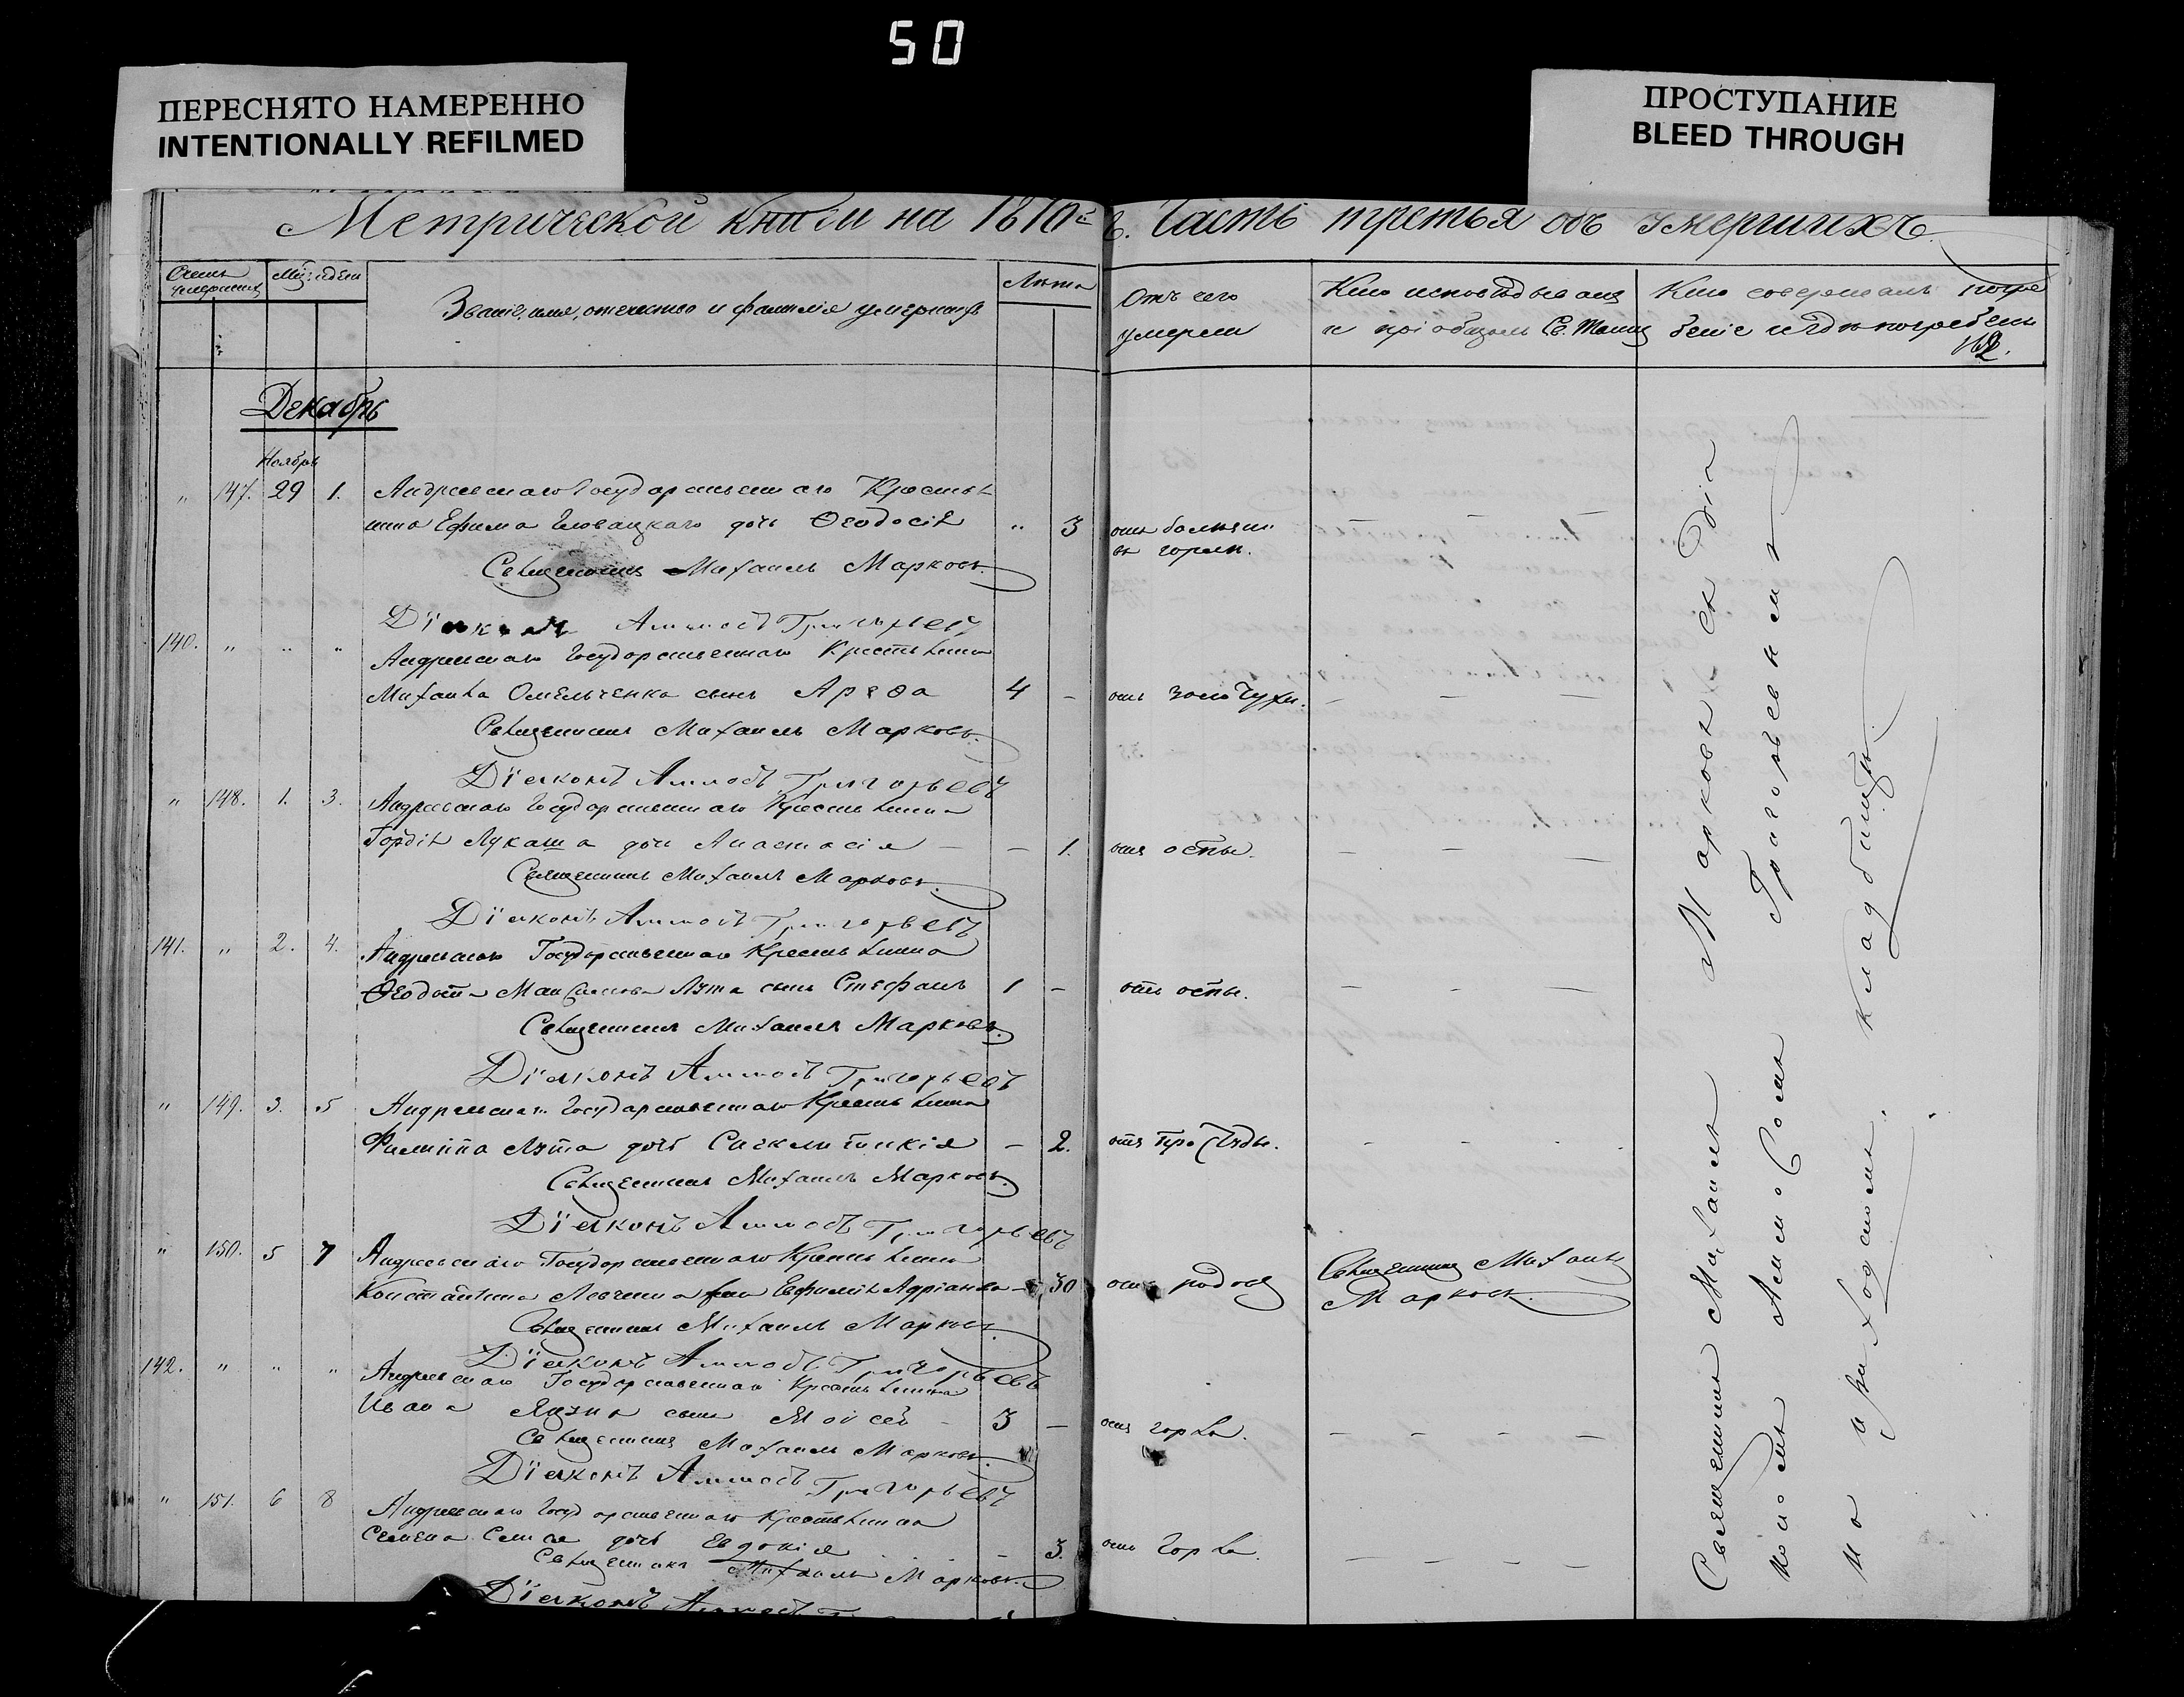 50
ПЕРЕСНЯТО НАМЕРЕННО
INTENTIONALLY REFILMED
ПРОСТУПАНИЕ
BLEED THROUGH
Метрической книги на 1870й г. Часть третья объ умершихъ.
Звание, имя, отечество и фамилія умершихъ
Лѣта
Отъ чего
умерли
Кто исповѣдывалъ
и пріобщалъ Св. Таинъ
Кто совершалъ погре
беніе и гдѣ погребены
Декабрь
Ноябрь
" 147. 29 1. Андреевскаго Государственнаго Крестья
нина Ефима дочь Ѳеодосія " 3 отъ болѣзни
въ горлѣ.
Священникъ Михаилъ Марковъ.
Діаконъ Григорьевъ
140. " " " Андреевскаго Государственнаго Крестьянина
Михаила Омельченка сынъ Ареѳа 4 - отъ золотухи. — — —
Священникъ Михаилъ Марковъ.
Діяконъ Григорьевъ
" 148. 1. 3. Андреевскаго Государственнаго Крестьянина
Гордія Лукаша дочь Анастасія — — 1. отъ оспы. — — —
Священникъ Михаилъ Марковъ.
Діяконъ Григорьевъ
141. " 2. 4. Андреевскаго Государственнаго Крестьянина
Ѳеодота Лута сынъ Стефанъ 1 - отъ оспы. — — —
Священникъ Михаилъ Марковъ.
Діяконъ Григорьевъ
" 149. 3. 5 Андреевскаго Государственнаго Крестьянина
Филиппа Лута дочь — 2. отъ простуды. - - .
Священникъ Михаилъ Марковъ.
Діяконъ Григорьевъ
" 150. 5 7 Андреевскаго Государственнаго Крестьянина
Константина Левченка жена Евфимія Адріанова - 30 отъ родовъ Священникъ Михаилъ
Марковъ.
Священникъ Михаилъ Марковъ
Діяконъ Григорьевъ
142. " " " Андреевскаго Государственнаго Крестьянина
Ивана сынъ Моисей - 3 — отъ горла. — - - —
Священникъ Михаилъ Марковъ.
Діяконъ Григорьевъ
" 151. 6 8 Андреевскаго Государственнаго Крестьянина
Семена дочь Евдокія 3. отъ горла. — — — —
Священникъ Михаилъ Марковъ.
Діяконъ
Священникъ Михаилъ Марковъ съ Діа
кономъ Григорьевимъ
на приходскомъ кладбищѣ.